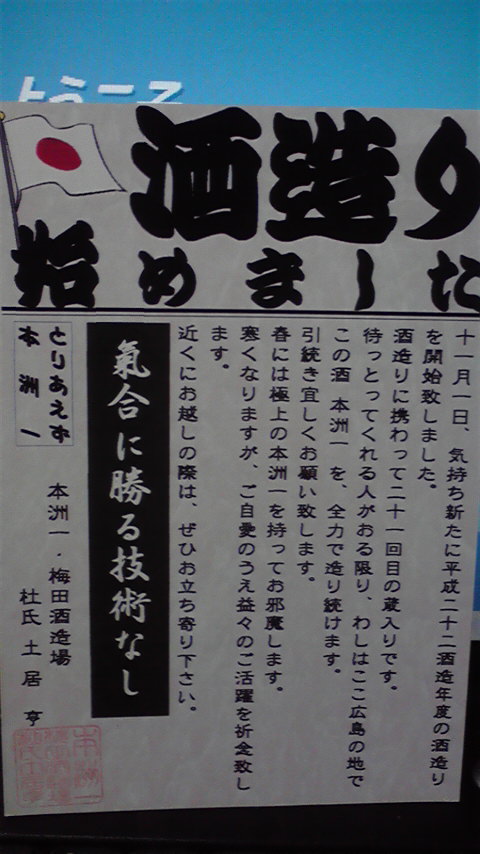 ようこそ
酒造り
始めました
十一月一日、気持ち新たに平成二十二酒造年度の酒造り
を開始致しました。
酒造りに携わって二十一回目の蔵入りです。
待っとってくれる人がおる限り、わしはここ広島の地で
この酒 本洲一 を、全力で造り続けます。
引続き宜しくお願い致します。
春には極上の本洲一を持ってお邪魔します。
寒くなりますが、ご自愛のうえ益々のご活躍を祈念致し
ます。
近くにお越しの際は、ぜひお立ち寄り下さい。
氣合に勝る技術なし
とりあえず
本洲一
本洲一・梅田酒造場
杜氏 土居 亨